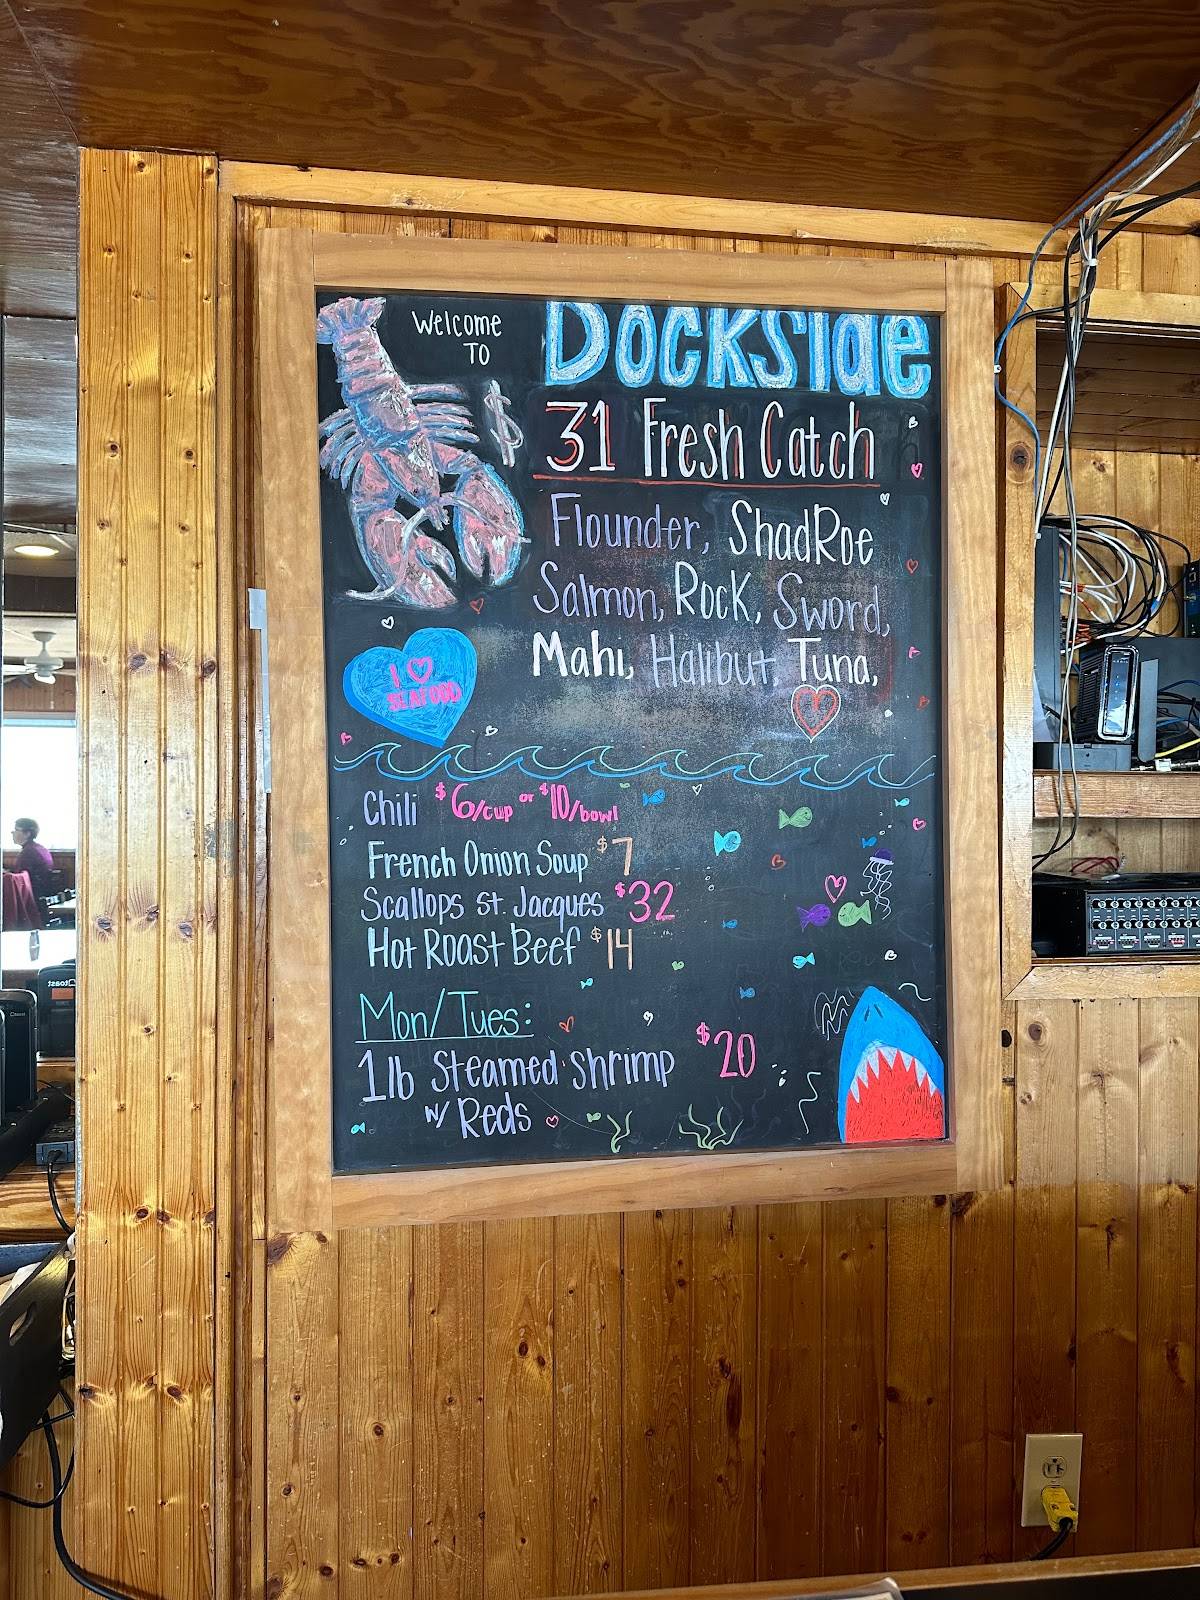 Welcome
TO
Dockside
$31 Fresh Catch
Flounder, ShadRoe
Salmon, Rock, Sword,
Mahi, Halibut, Tuna,
I ♡
SEAFOOD
Chili $6/cup or $10/bowl
French Onion Soup $7
Scallops St. Jacques $32
Hot Roast Beef $14
Mon/Tues:
1lb Steamed Shrimp $20
w/ Reds
toast